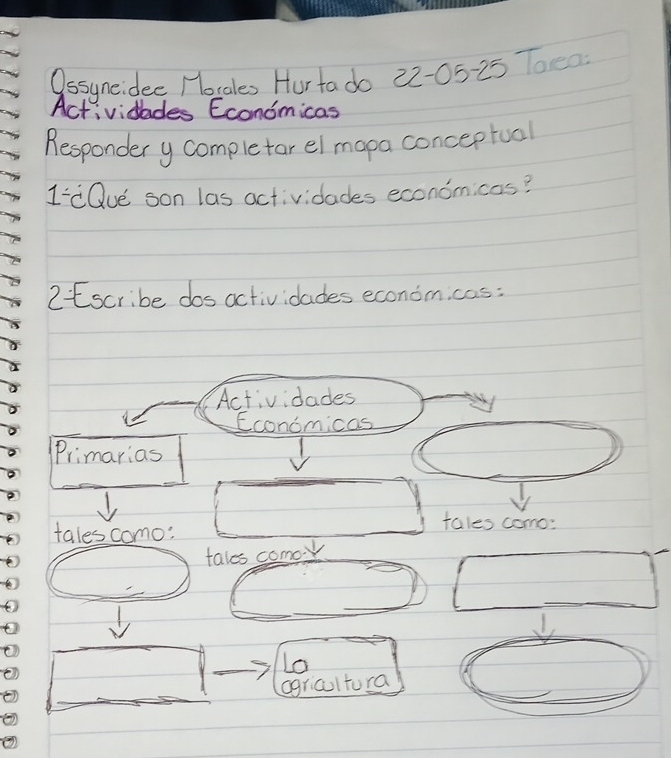 Ossyneidee Morales Hurtado 22-05-25 Tarea:
Actividades Económicas
Responder y completar el mapa conceptual
1-¿Qué son las actividades económicas?
2-Escribe dos actividades económicas:
Actividades
Económicas
Primarias
tales como:
tales como:
tales como:
La
agricultura